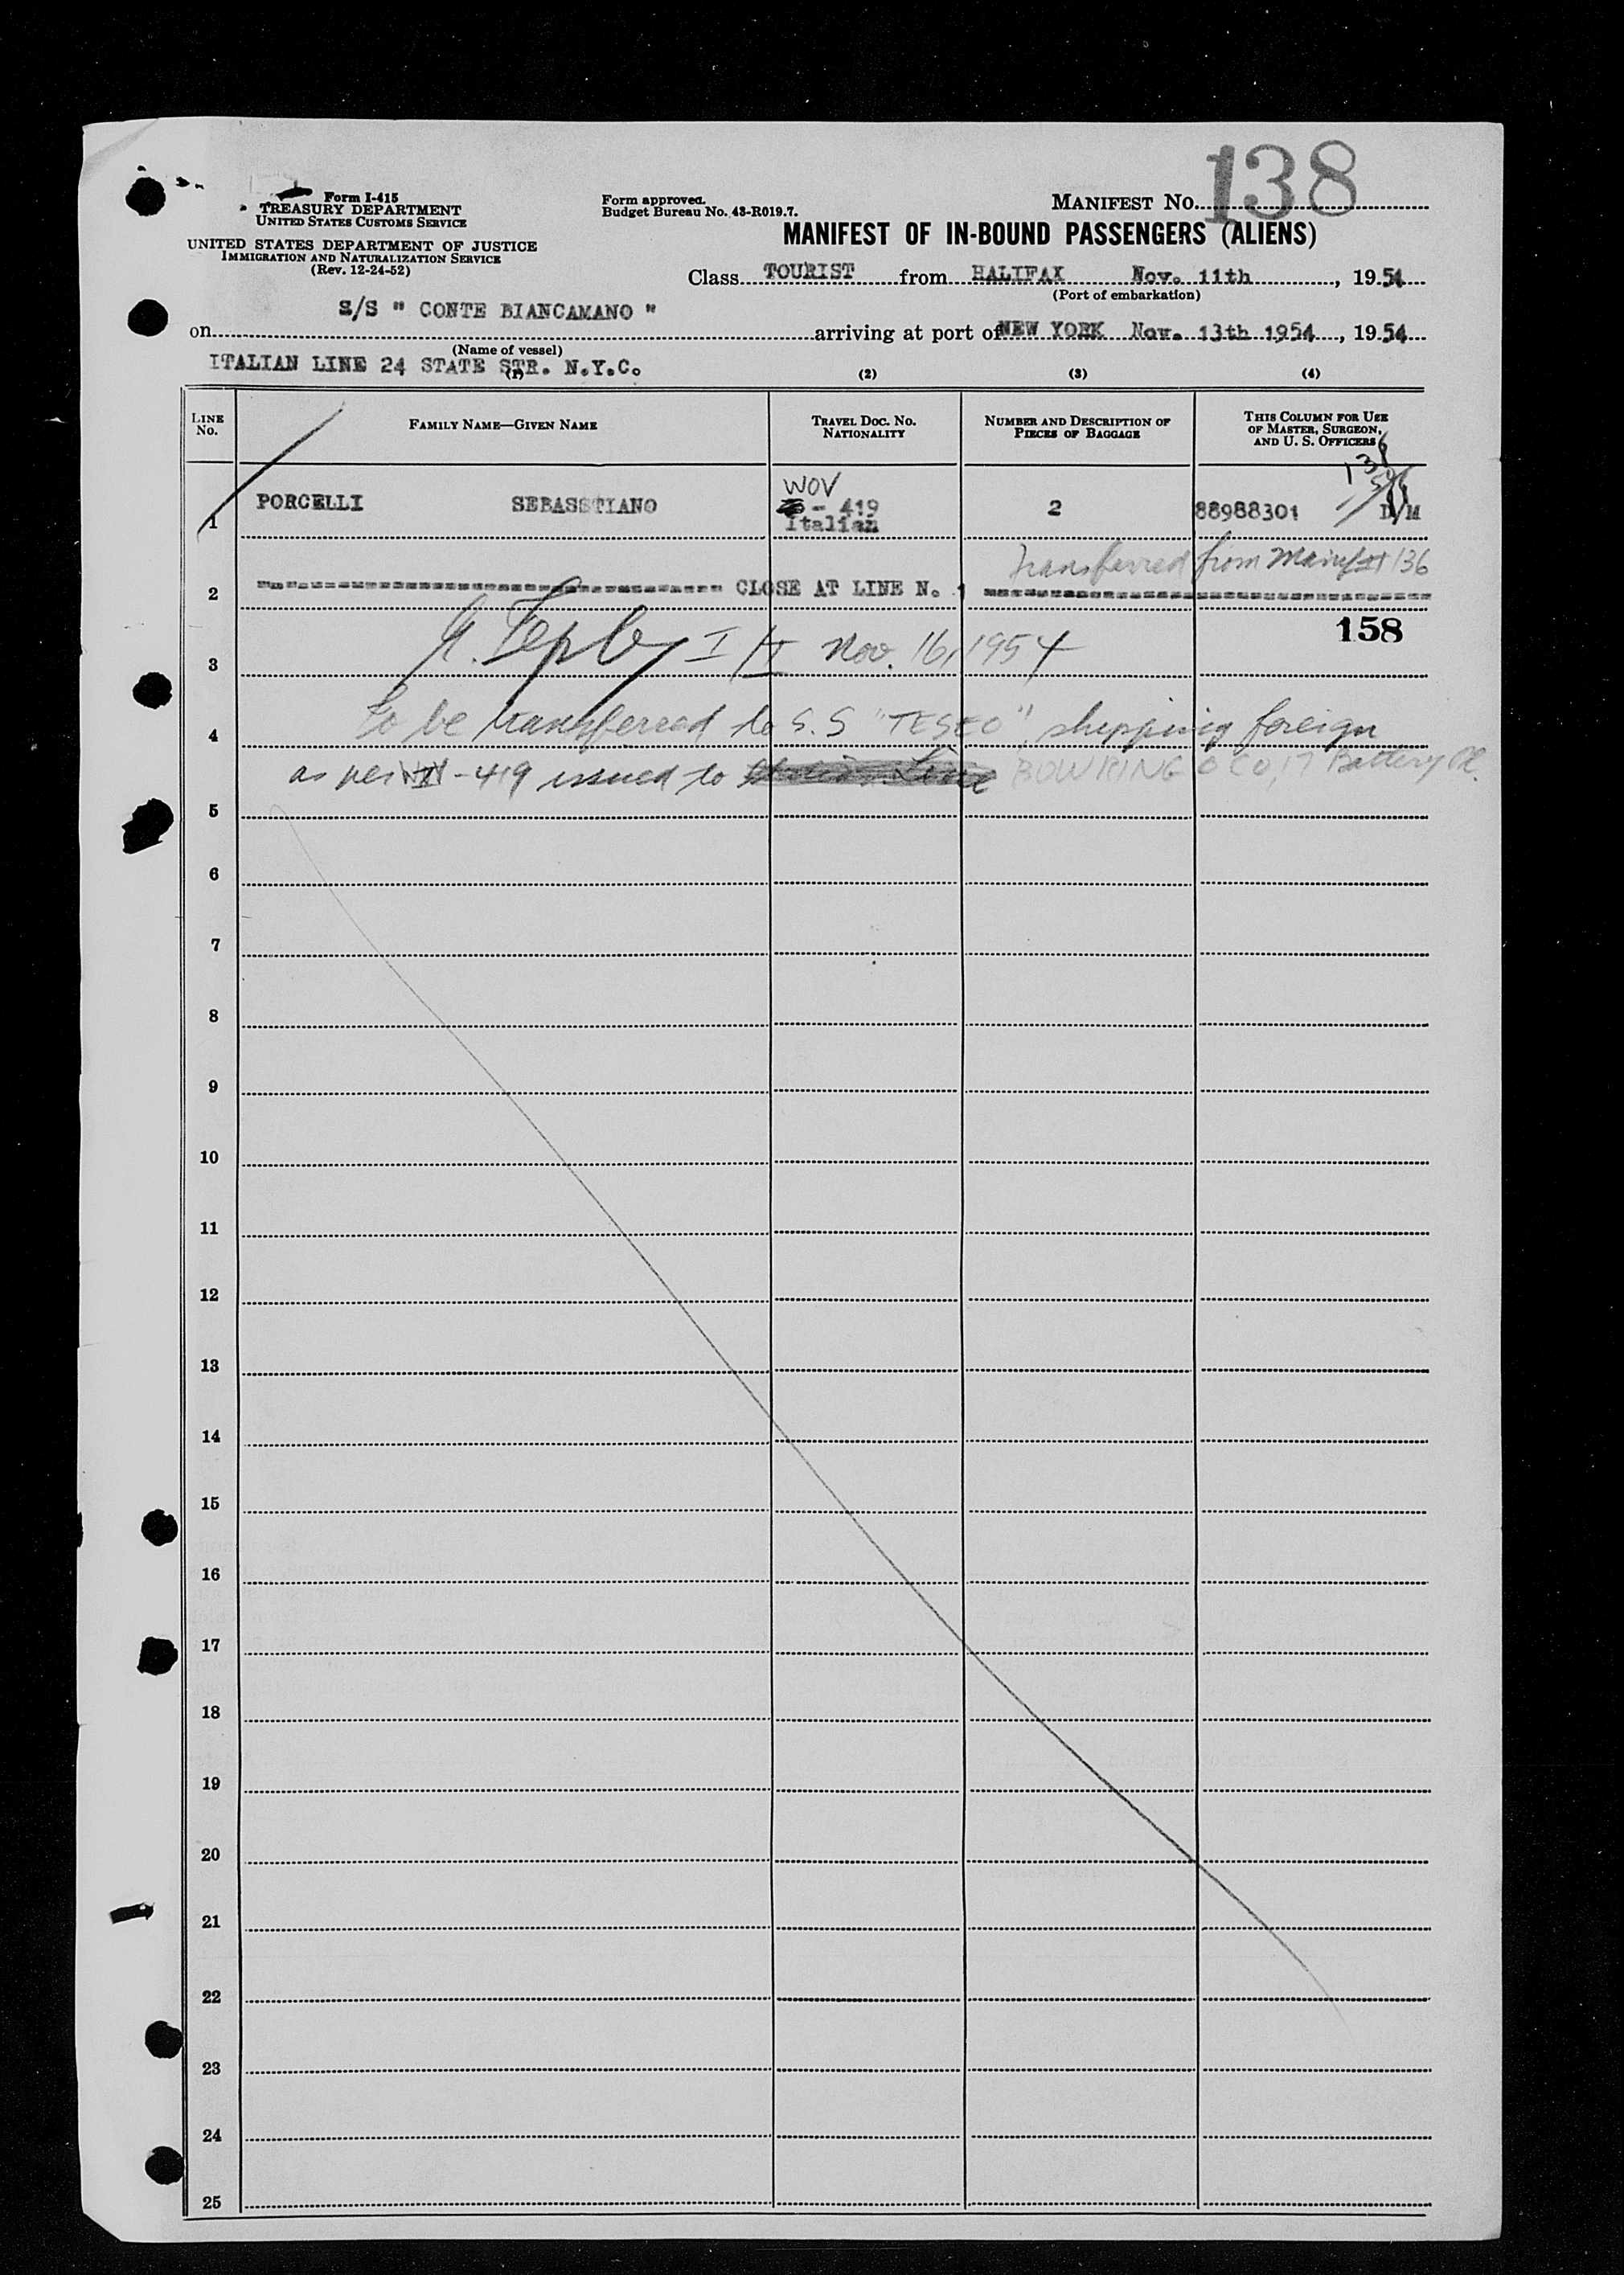 138
Form I-415
TREASURY DEPARTMENT
UNITED STATES CUSTOMS SERVICE
UNITED STATES DEPARTMENT OF JUSTICE
IMMIGRATION AND NATURALIZATION SERVICE
(Rev. 12-24-52)
Form approved.
Budget Bureau No. 43-R019.7.
MANIFEST No.
MANIFEST OF IN-BOUND PASSENGERS (ALIENS)
Class TOURIST from HALIFAX Nov. 11th, 1954
(Port of embarkation)
S/S " CONTE BIANCAMANO "
on arriving at port of NEW YORK Nov. 13th 1954, 1954
(Name of vessel)
ITALIAN LINE 24 STATE STR. N.Y.C.
(1) (2) (3) (4)
LINE No. FAMILY NAME—GIVEN NAME TRAVEL DOC. NO. NATIONALITY NUMBER AND DESCRIPTION OF PIECES OF BAGGAGE THIS COLUMN FOR USE OF MASTER, SURGEON, AND U. S. OFFICERS
WOV
1 PORCELLI SEBASSTIANO - 419 2 88988301 D/M
Italian
transferred from Manifest 136
2 CLOSE AT LINE N. 1
158
3 Nov. 16, 1954
4 to be transferred to S.S "TESEO" shipping foreign
as per - 419 issued to BOWRING & CO, 17 Battery Pl.
5
6
7
8
9
10
11
12
13
14
15
16
17
18
19
20
21
22
23
24
25